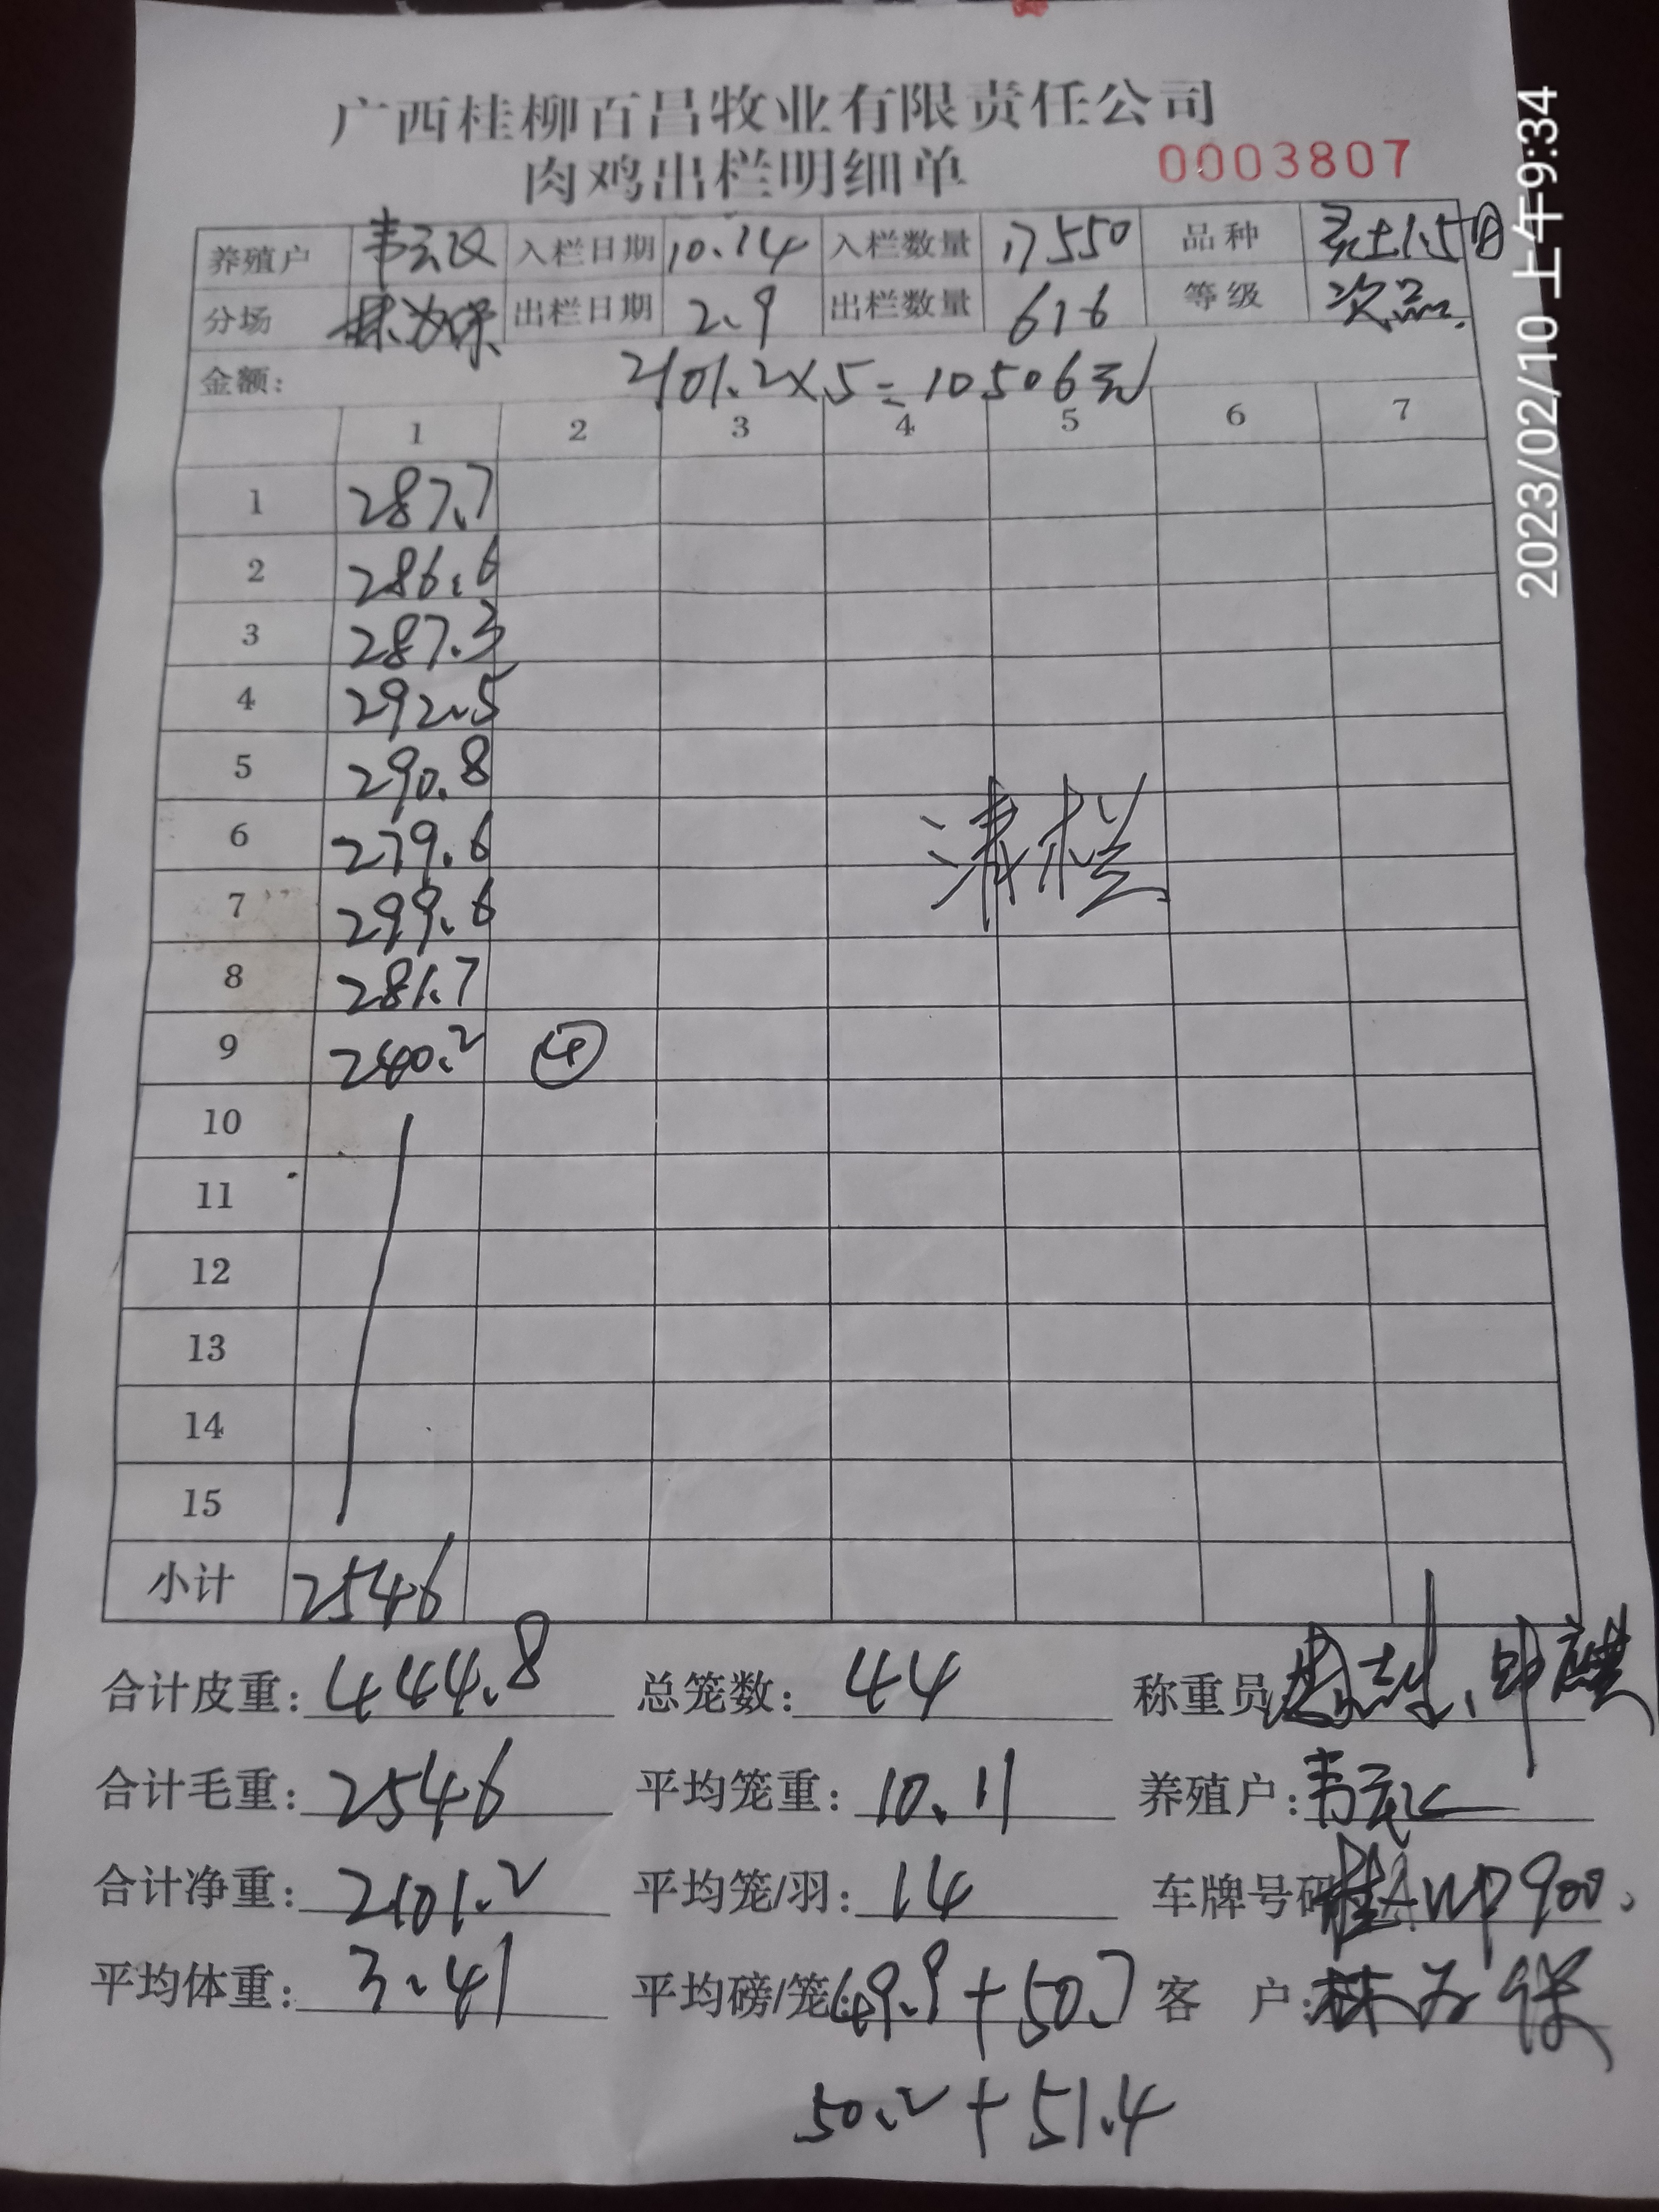 广西桂柳百昌牧业有限责任公司
肉鸡出栏明细单 0003807
养殖户 韦 入栏日期 10.14 入栏数量 17550 品种 土1.5
分场 林为保 出栏日期 2.9 出栏数量 616 等级 次品.
金额: 2101.2×5=10506元
1 2 3 4 5 6 7
1 287.7
2 286.6
3 287.3
4 292.5
5 290.8
6 279.6
7 299.6
8 281.7
9 240.2 ④
清栏
10
11
12
13
14
15
小计 2546
合计皮重: 444.8 总笼数: 44 称重员
合计毛重: 2546 平均笼重: 10.11 养殖户: 韦
合计净重: 2101.2 平均笼/羽: 14 车牌号码 桂AWP900
平均体重: 3.41 平均磅/笼: 49.9+50.7 客 户: 林为保
50.2+51.4
2023/02/10 上午9:34